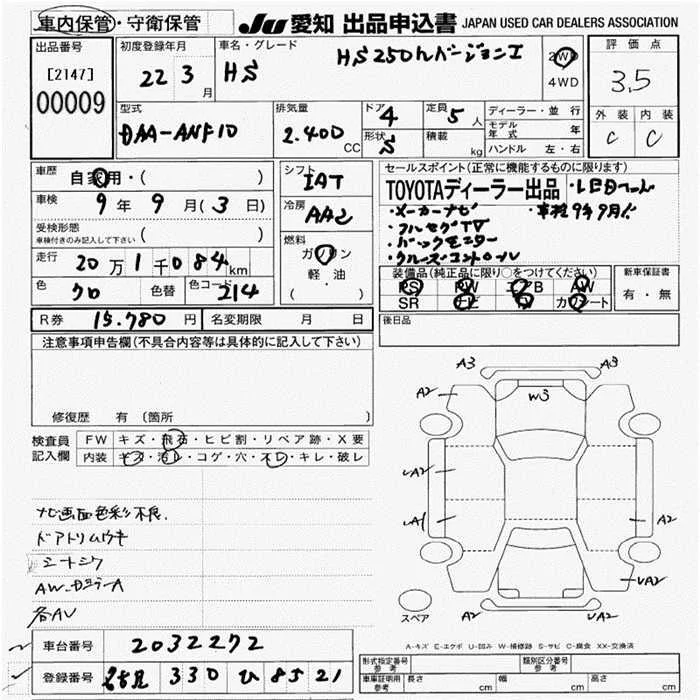 車内保管・守衛保管 JU 愛知 出品申込書 JAPAN USED CAR DEALERS ASSOCIATION
出品番号 [2147] 00009
初度登録年月 22 3月
車名・グレード HS HS250hバージョンI
2WD 4WD
評価点 3.5
外装 C 内装 C
型式 DAA-ANF10
排気量 2.400 CC
ドア 4 形状 S
定員 5人 積載 kg
ディーラー・並行
モデル年式 年
ハンドル 左・右
車歴 自家用・( )
車検 9年 9月(3日)
受検形態 車検付きのみ記入して下さい ( )
走行 20万1千084km
色 クロ 色替 色コード 214
シフト IAT
冷房 AAC
燃料 ガソリン 軽・油 ( )
セールスポイント(正常に機能するものに限ります)
TOYOTAディーラー出品
・メーカーナビ ・車検9年9月迄
・フルセグTV
・バックモニター
・クルーズコントロール
装備品(純正品に限り○をつけてください)
PS PW エアB AW
SR ナビ カワシート
新車保証書 有・無
R券 15.780円 名変期限 月 日
後日品
注意事項申告欄(不具合内容等は具体的に記入して下さい)
修復歴 有 〔箇所 〕
検査員記入欄
FW キズ・飛石・ヒビ割・リペア跡・X要
内装 キズ・汚レ・コゲ・穴・スレ・キレ・破レ
ナビ画面色彩不良.
ドアトリムウキ
シートシワ
各AU
A3 A3
A2 W3
UA2
UA1 A2
UA2
スペア A2 UA2
A-キズ E-エクボ U-凹み W-補修跡 S-サビ C-腐食 XX-交換済
車台番号 2032272
登録番号 名古屋 330 ひ 85 21
形式指定番号 参考 類別区分番号 参考
車庫証明用 参考 長さ cm 幅 cm 高さ cm